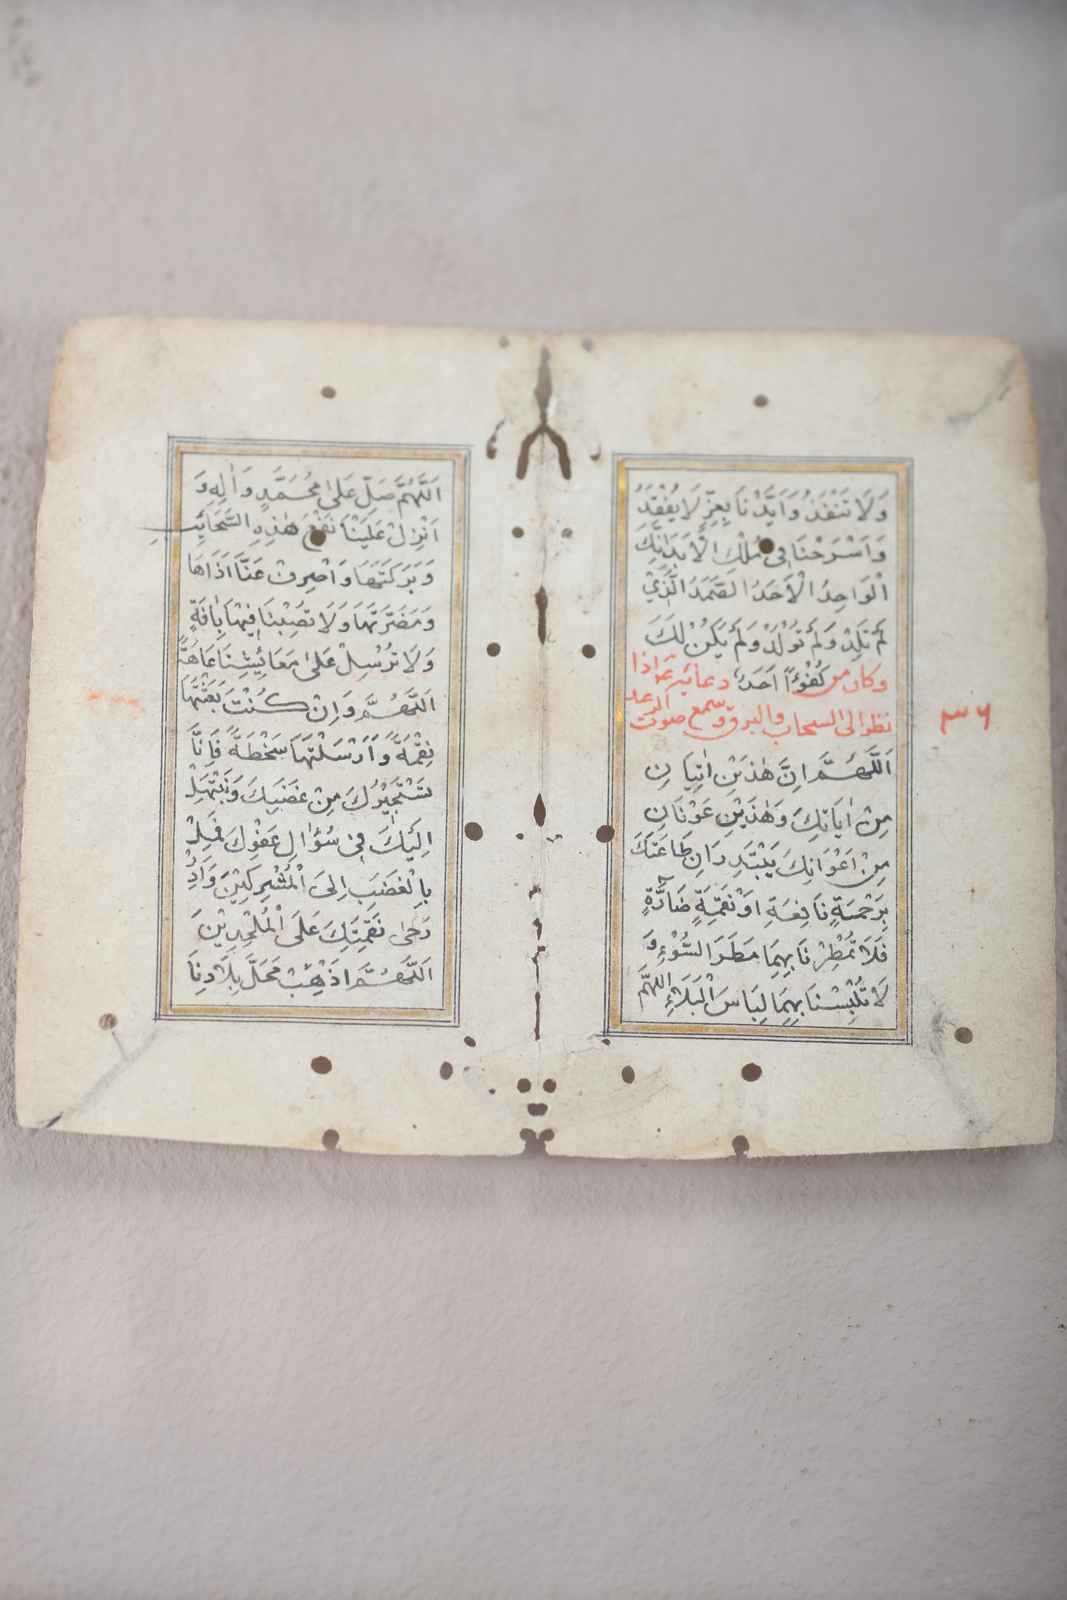 وَلَا تَنْفَدُ وَاَيِّدْنَا بِعِزٍّ لَا يُفْقَدُ
وَاسْرَحْنَا فِى مُلْكِ الْاَبَدِ اِنَّكَ
الْوَاحِدُ الْاَحَدُ الصَّمَدُ الَّذِي
لَمْ تَلِدْ وَلَمْ تُولَدْ وَلَمْ يَكُنْ لَكَ
كُفُوًا اَحَدٌ وكان من دعائه اذا
نظر الى السحاب والبرق وسمع صوت الرعد
٣٦
اَللَّهُمَّ اِنَّ هٰذَيْنِ اٰيَتَانِ
مِنْ اٰيَاتِكَ وَهٰذَيْنِ عَوْنَانِ
مِنْ اَعْوَانِكَ يَبْتَدِرَانِ طَاعَتَكَ
بِرَحْمَةٍ نَافِعَةٍ اَوْ نَقِمَةٍ ضَارَّةٍ
فَلَا تُمْطِرْنَا بِهِمَا مَطَرَ السَّوْءِ وَ
لَا تُلْبِسْنَا بِهِمَا لِبَاسَ الْبَلَاءِ اللهُمَّ
اَللَّهُمَّ صَلِّ عَلىٰ مُحَمَّدٍ وَاٰلِهِ وَ
اَنْزِلْ عَلَيْنَا نَفْعَ هٰذِهِ السَّحَائِبِ
وَبَرَكَتَهَا وَاصْرِفْ عَنَّا اَذَاهَا
وَمَضَرَّتَهَا وَلَا تُصِبْنَا فِيهَا بِاٰفَةٍ
وَلَا تُرْسِلْ عَلىٰ مَعَائِشِنَا عَاهَةً
اَللَّهُمَّ وَاِنْ كُنْتَ بَعَثْتَهَا
نِقْمَةً وَاَرْسَلْتَهَا سَخْطَةً فَاِنَّا
نَسْتَجِيرُكَ مِنْ غَضَبِكَ وَنَبْتَهِلُ
اِلَيْكَ فِى سُؤَالِ عَفْوِكَ فَمِلْ
بِالْغَضَبِ اِلىَ الْمُشْرِكِينَ وَاَدِرْ
رَحىٰ نَقِمَتِكَ عَلَى الْمُلْحِدِيْنَ
اَللَّهُمَّ اذْهِبْ مَحَلَّ بِلَادِنَا